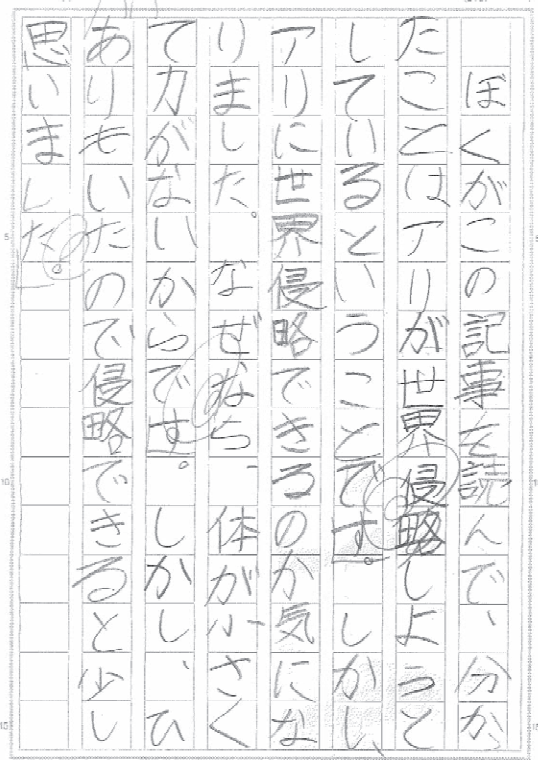 ぼくがこの記事を読んで、分かっ
たことはアリが世界侵略しようと
しているということです。しかし、
アリに世界侵略できるのか気にな
りました。なぜなら、体が小さく
て力がないからです。しかし、ひ
ありもいたので侵略できると少し
思いました。